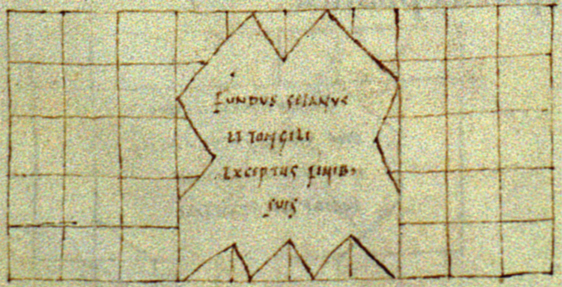 FUNDUS SEIANVS
LI TONGILI
EXCEPTUS FINIB;
SUIS